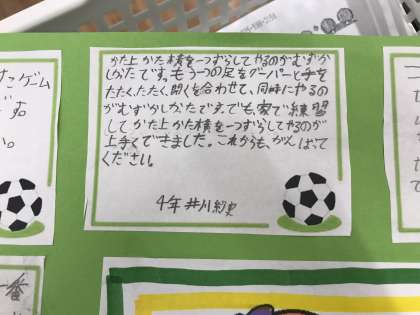 かた上 かた横を一つずらしてやるのがむずか
しかた です。もう1つの足をグーパーと手を
たたく、たたく、開くを合わせて、同時にやるの
がむずかしかたでえ。でも、家で練習
して かた上 かた横を一つずらしてやるのが
上手くできました。これからも、がんばて
ください。
4年 井川
こゲーム
一番